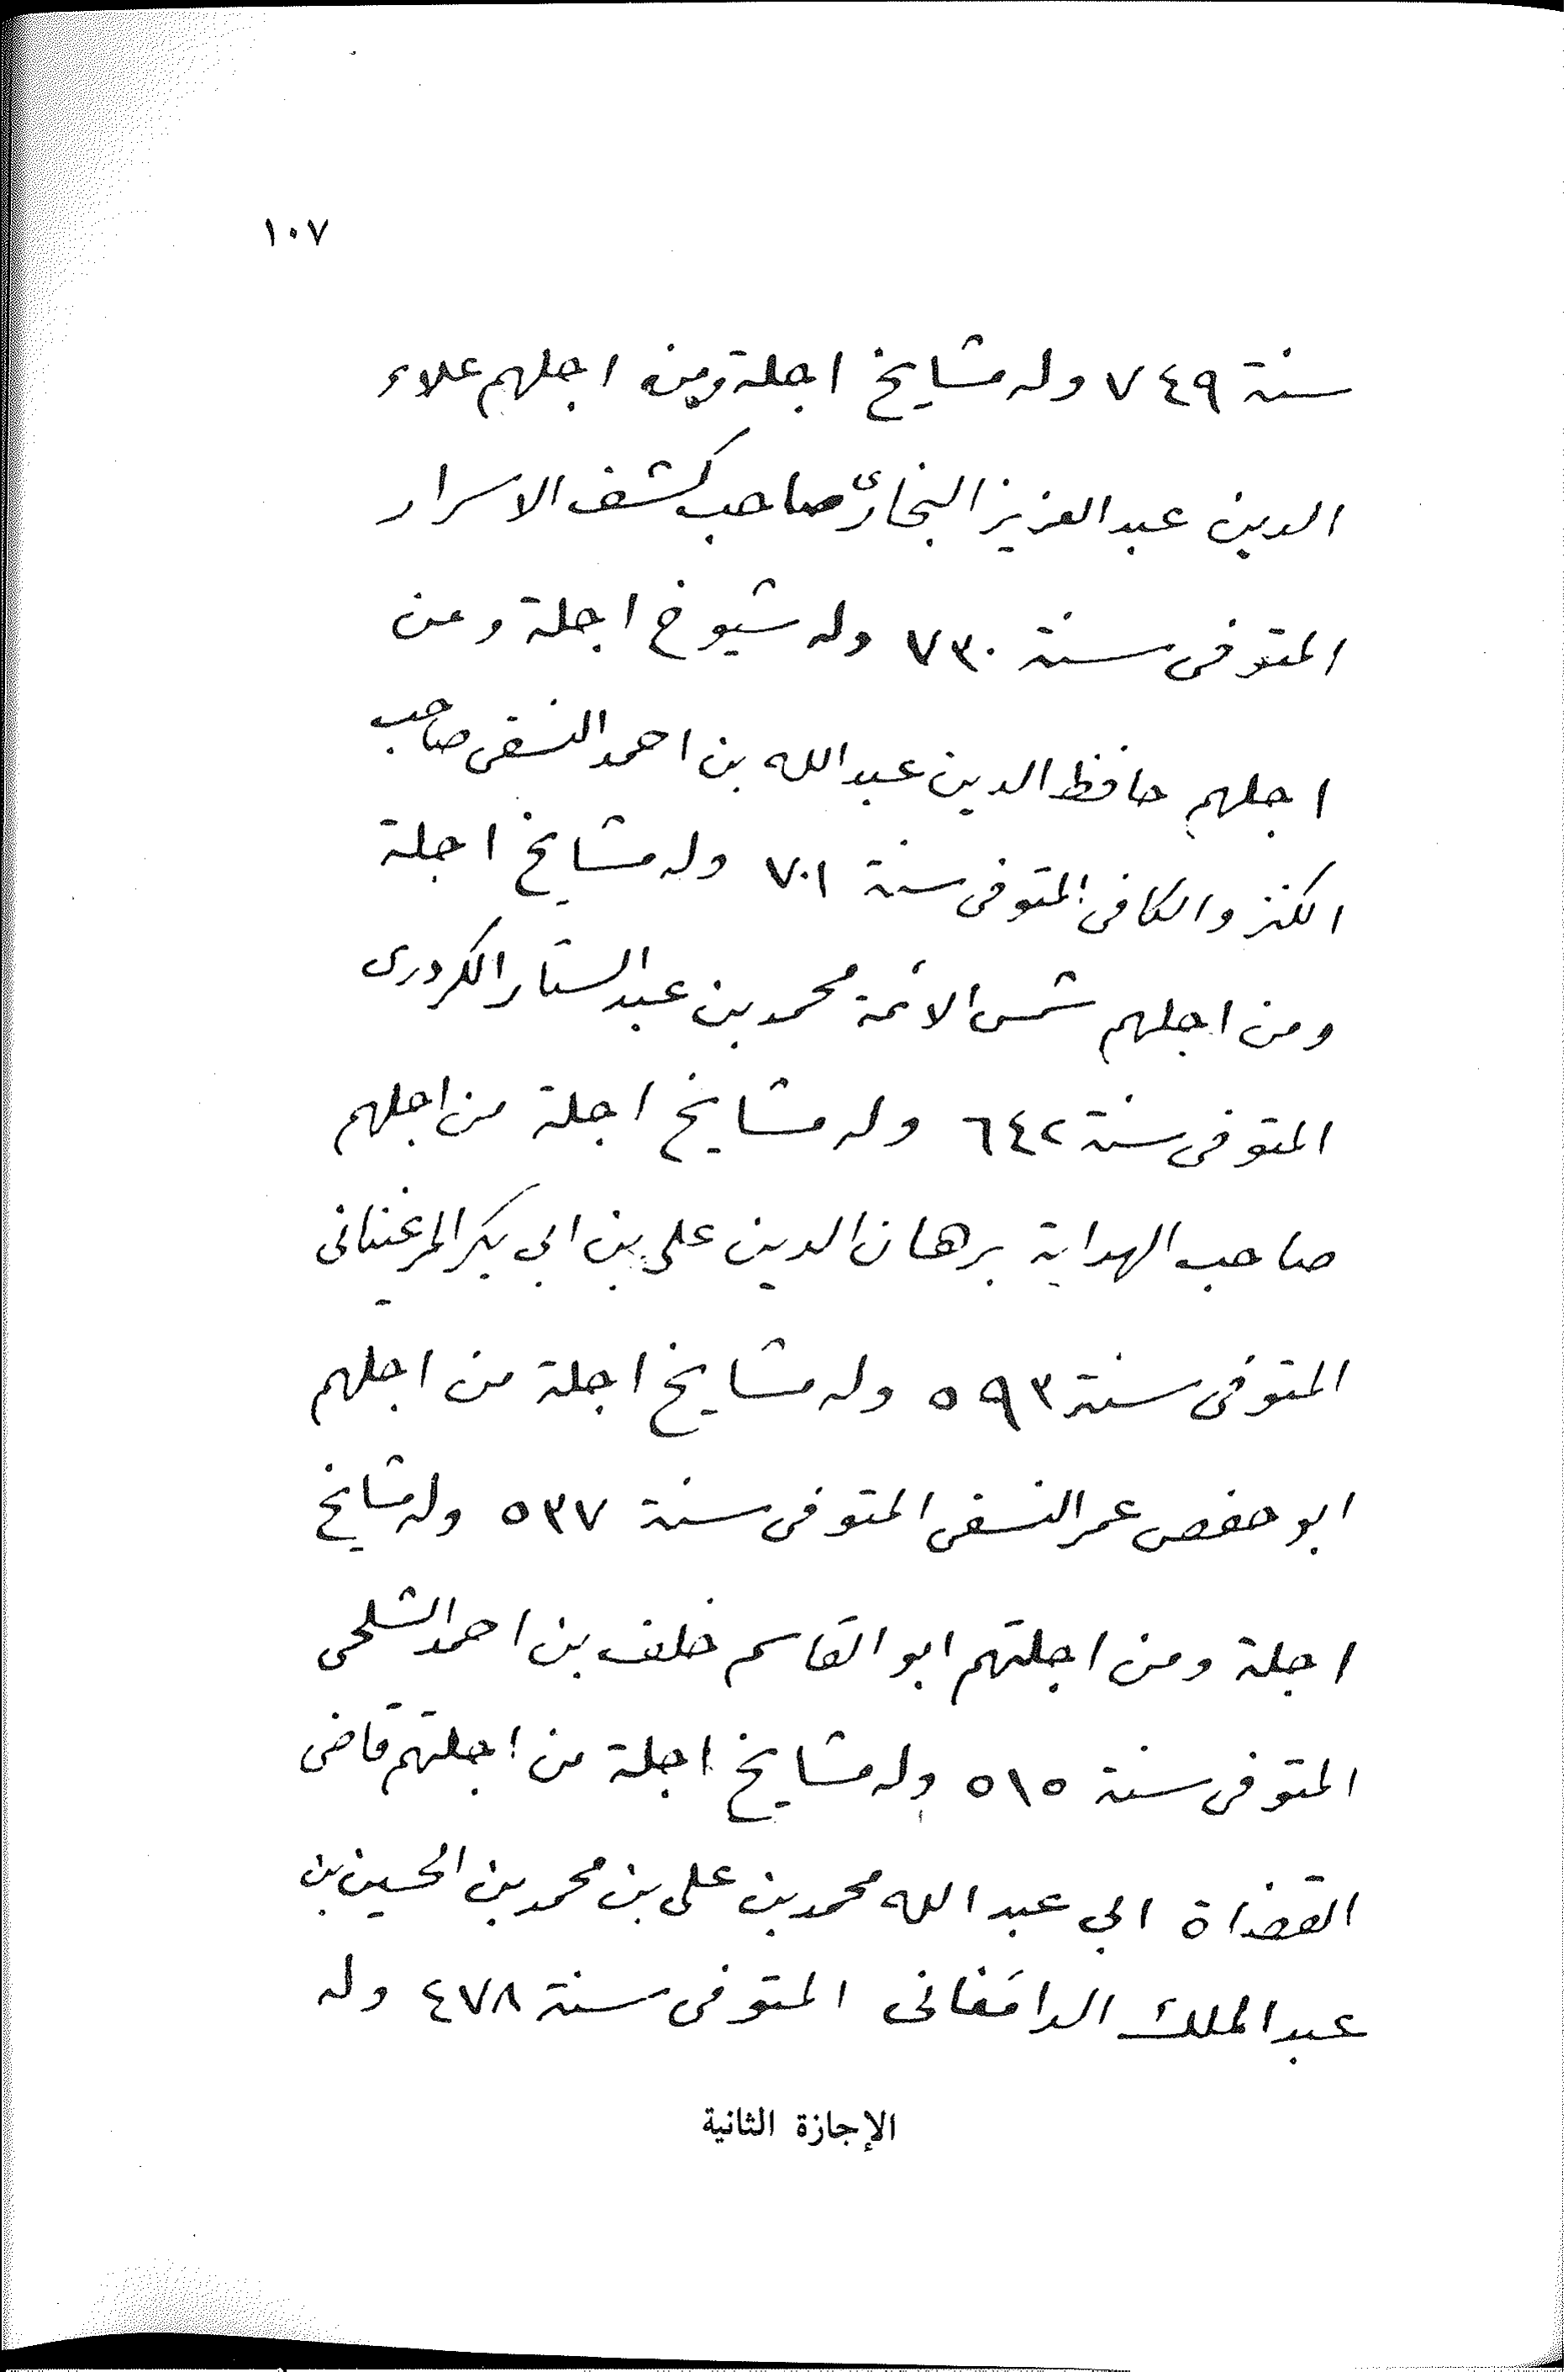 ١٠٧
سنة ٧٤٩ وله مشايخ اجلة ومن اجلهم علاء
الدين عبد العزيز البخارى صاحب كشف الاسرار
المتوفى سنة ٧٣٠ وله شيوخ اجلة ومن
اجلهم حافظ الدين عبد الله بن احمد النسفى صاحب
الكنز والكافى المتوفى سنة ٧٠١ وله مشايخ اجلة
ومن اجلهم شمس الائمة محمد بن عبد الستار الكردرى
المتوفى سنة ٦٤٢ وله مشايخ اجلة من اجلهم
صاحب الهداية برهان الدين على بن ابي بكر المرغينانى
المتوفى سنة ٥٩٣ وله مشايخ اجلة من اجلهم
ابو حفص عمر النسفى المتوفى سنة ٥٣٧ وله مشايخ
اجلة ومن اجلتهم ابو القاسم خلف بن احمد الشلحى
المتوفى سنة ٥١٥ وله مشايخ اجلة من اجلتهم قاضى
القضاة ابي عبد الله محمد بن على بن محمد بن الحسين بن
عبد الملك الدامَغانى المتوفى سنة ٤٧٨ وله
الإجازة الثانية